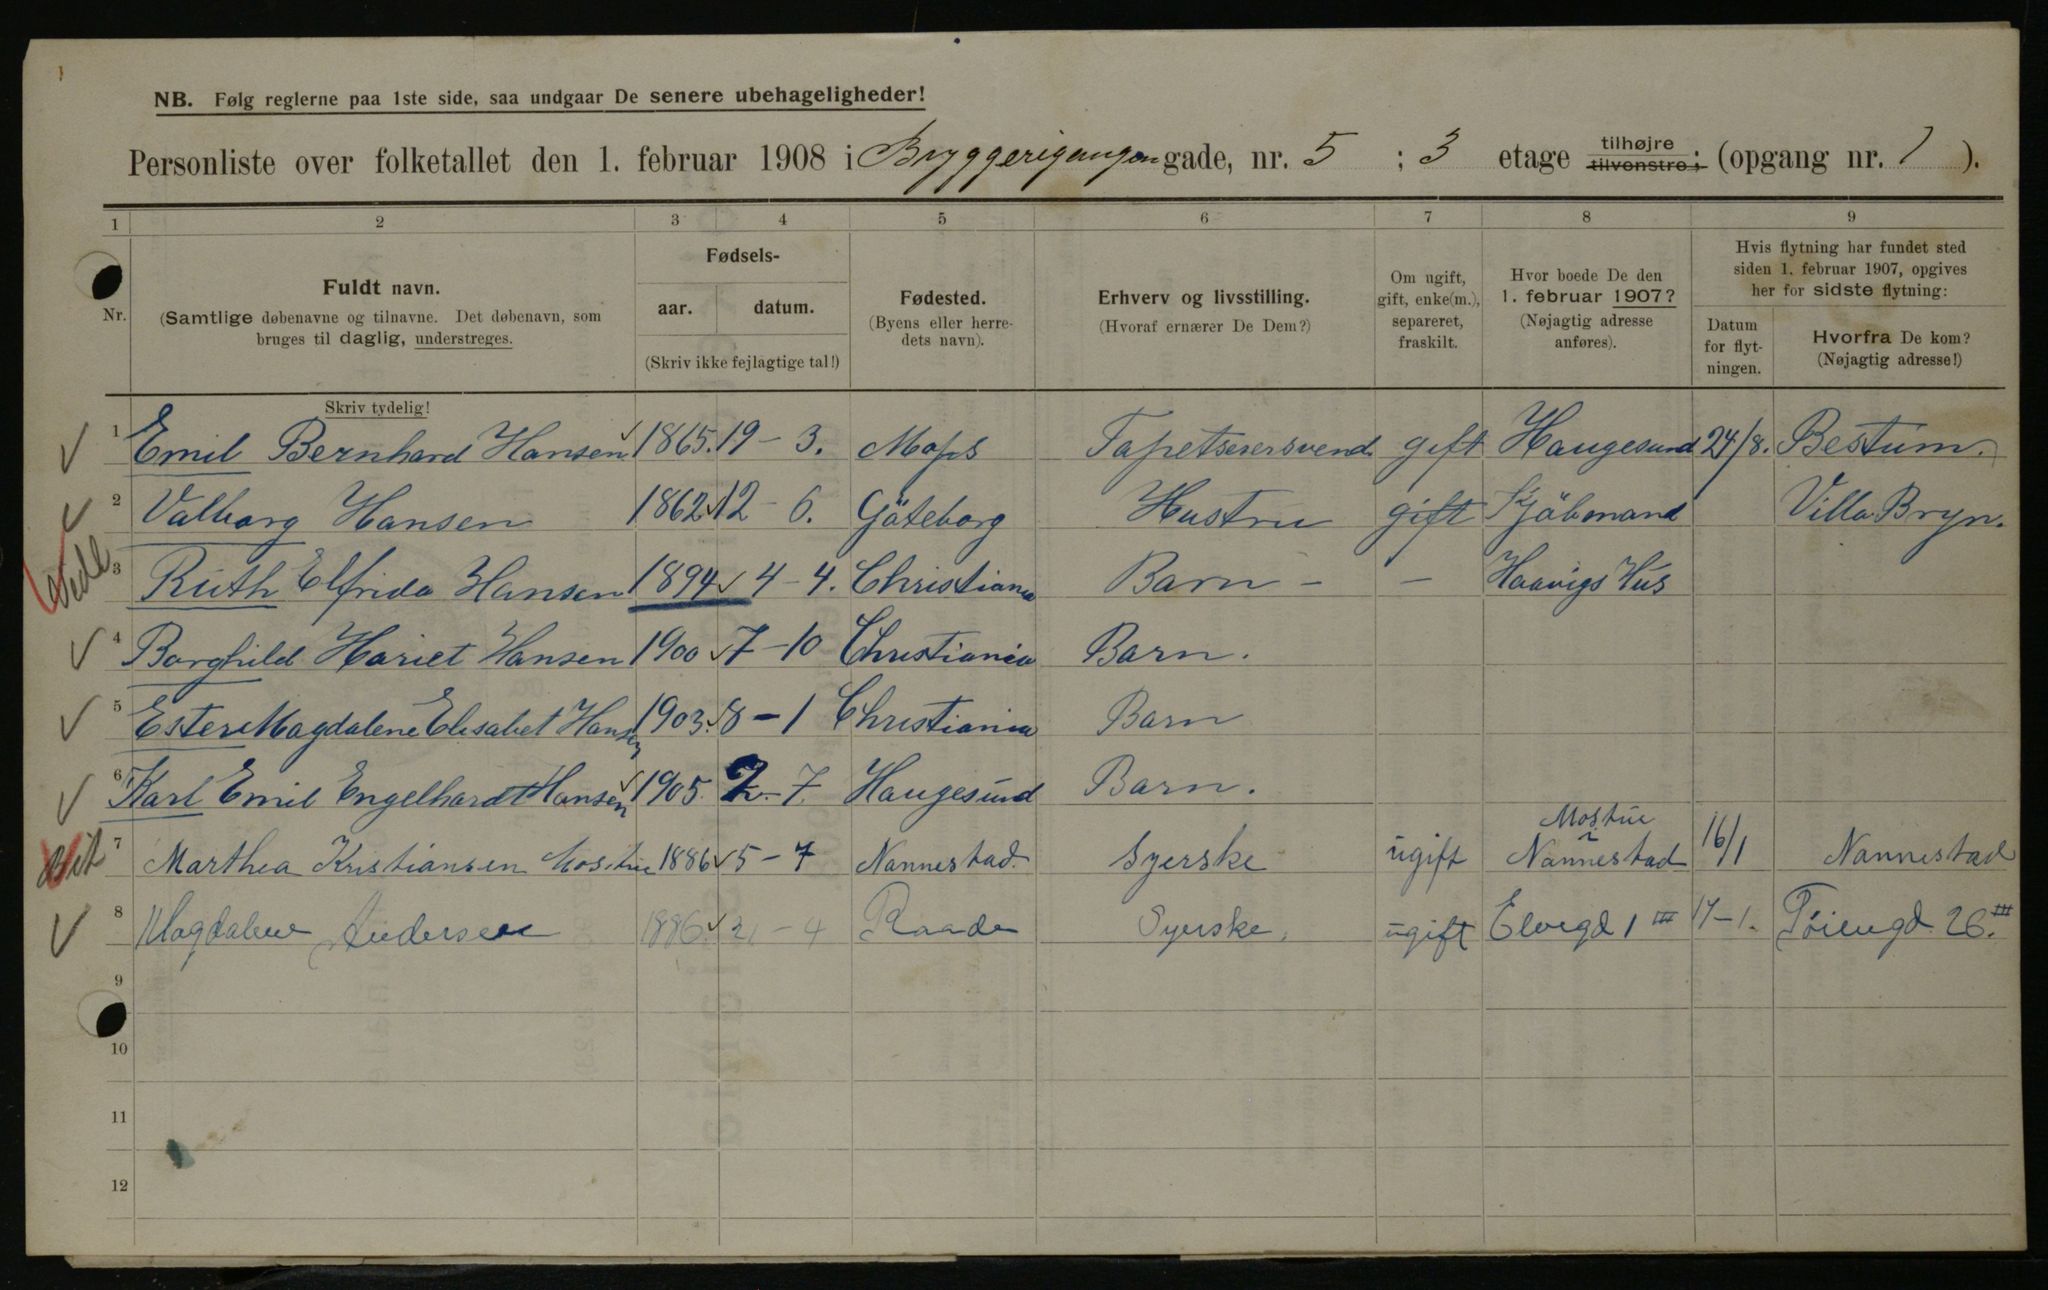 NB. Følg reglerne paa 1ste side, saa undgaar De senere ubehageligheder!
Personliste over folketallet den 1. februar 1908 i Bryggerigangen gade, nr. 5 ; 3 etage tilhøjre tilvenstre; (opgang nr. 1 ).
1 2 3 4 5 6 7 8 9
Nr.
Fuldt navn.
(Samtlige døbenavne og tilnavne. Det døbenavn, som
bruges til daglig, understreges.
Skriv tydelig!
Fødsels-
aar. datum.
(Skriv ikke fejlagtige tal!)
Fødested.
(Byens eller herre-
dets navn).
Erhverv og livsstilling.
(Hvoraf ernærer De Dem?)
Om ugift,
gift, enke(m.),
separeret,
fraskilt.
Hvor boede De den
1. februar 1907?
(Nøjagtig adresse
anføres).
Hvis flytning har fundet sted
siden 1. februar 1907, opgives
her for sidste flytning:
Datum
for flyt-
ningen.
Hvorfra De kom?
(Nøjagtig adresse!)
1 Emil Bernhard Hansen 1865. 19 - 3. Moss Tapetserersvend. gift Haugesund 24/8. Bestum.
2 Valborg Hansen 1862 12 - 6. Göteborg Hustru gift Kjöbmand Villa Bryn.
3 Ruth Elfrida Hansen 1894 4 - 4. Christiania Barn - - Haavigs Hus
4 Borghild Hariet Hansen 1900 7 - 10 Christiania Barn.
5 Ester Magdalene Elisabet Hansen 1903. 8 - 1 Christiania Barn
6 Karl Emil Engelhardt Hansen 1905. 2 - 7. Haugesund Barn.
7 Marthea Kristiansen Mostue 1886 5 - 7 Nannestad. Syerske ugift Mostue Nannestad 16/1 Nannestad
8 Magdalene Andersen 1886. 21 - 4 Raade Syerske. ugift Elvegd 1 III 17-1. Töiengd. 26. III
9
10
11
12